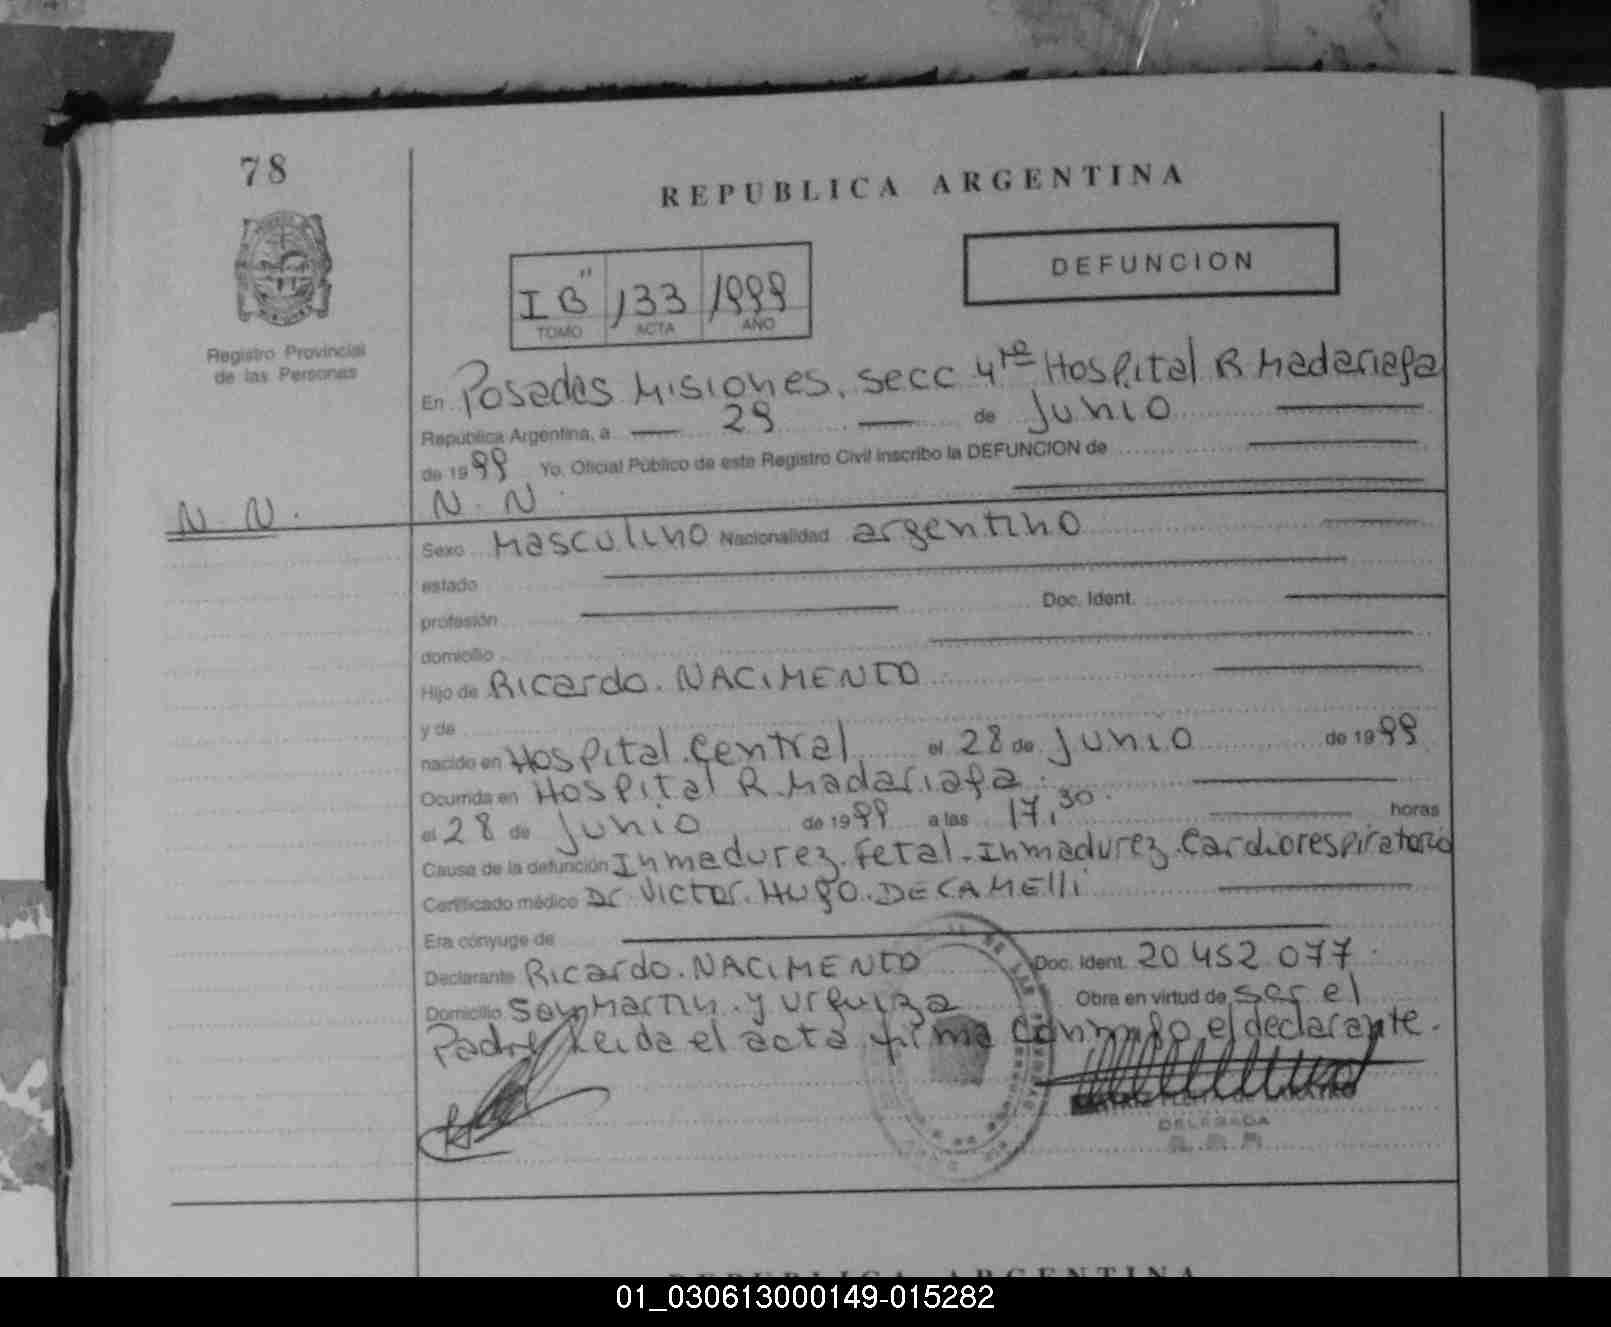 78
REPUBLICA ARGENTINA
I B" 133 1999
TOMO ACTA AÑO
DEFUNCION
Registro Provincial
de las Personas
En Posadas Misiones, secc 4ta Hospital R Madariaga
República Argentina, a 29 de Junio
de 1999 Yo, Oficial Público de este Registro Civil inscribo la DEFUNCION de
N. N.
N. N
Sexo Masculino Nacionalidad argentino
estado
profesión Doc. Ident.
domicilio
Hijo de Ricardo. NACIMENTO
y de
nacido en Hospital Central el 28 de Junio de 1999
Ocurrida en Hospital R. Madariaga.
el 28 de Junio de 1999 a las 17,30. horas
Causa de la defunción Inmadurez. Fetal. Inmadurez. Cardiorespiratorio
Certificado médico Dr. Victor. Hugo. DECAMElli
Era cónyuge de
Declarante Ricardo. NACIMENTO Doc. Ident. 20 452 077.
Domicilio San Martin. y Urquiza Obra en virtud de ser el
Padre Leida el acta firma conmigo el declarante.
DELEGADA
REPUBLICA ARGENTINA
01_030613000149-015282